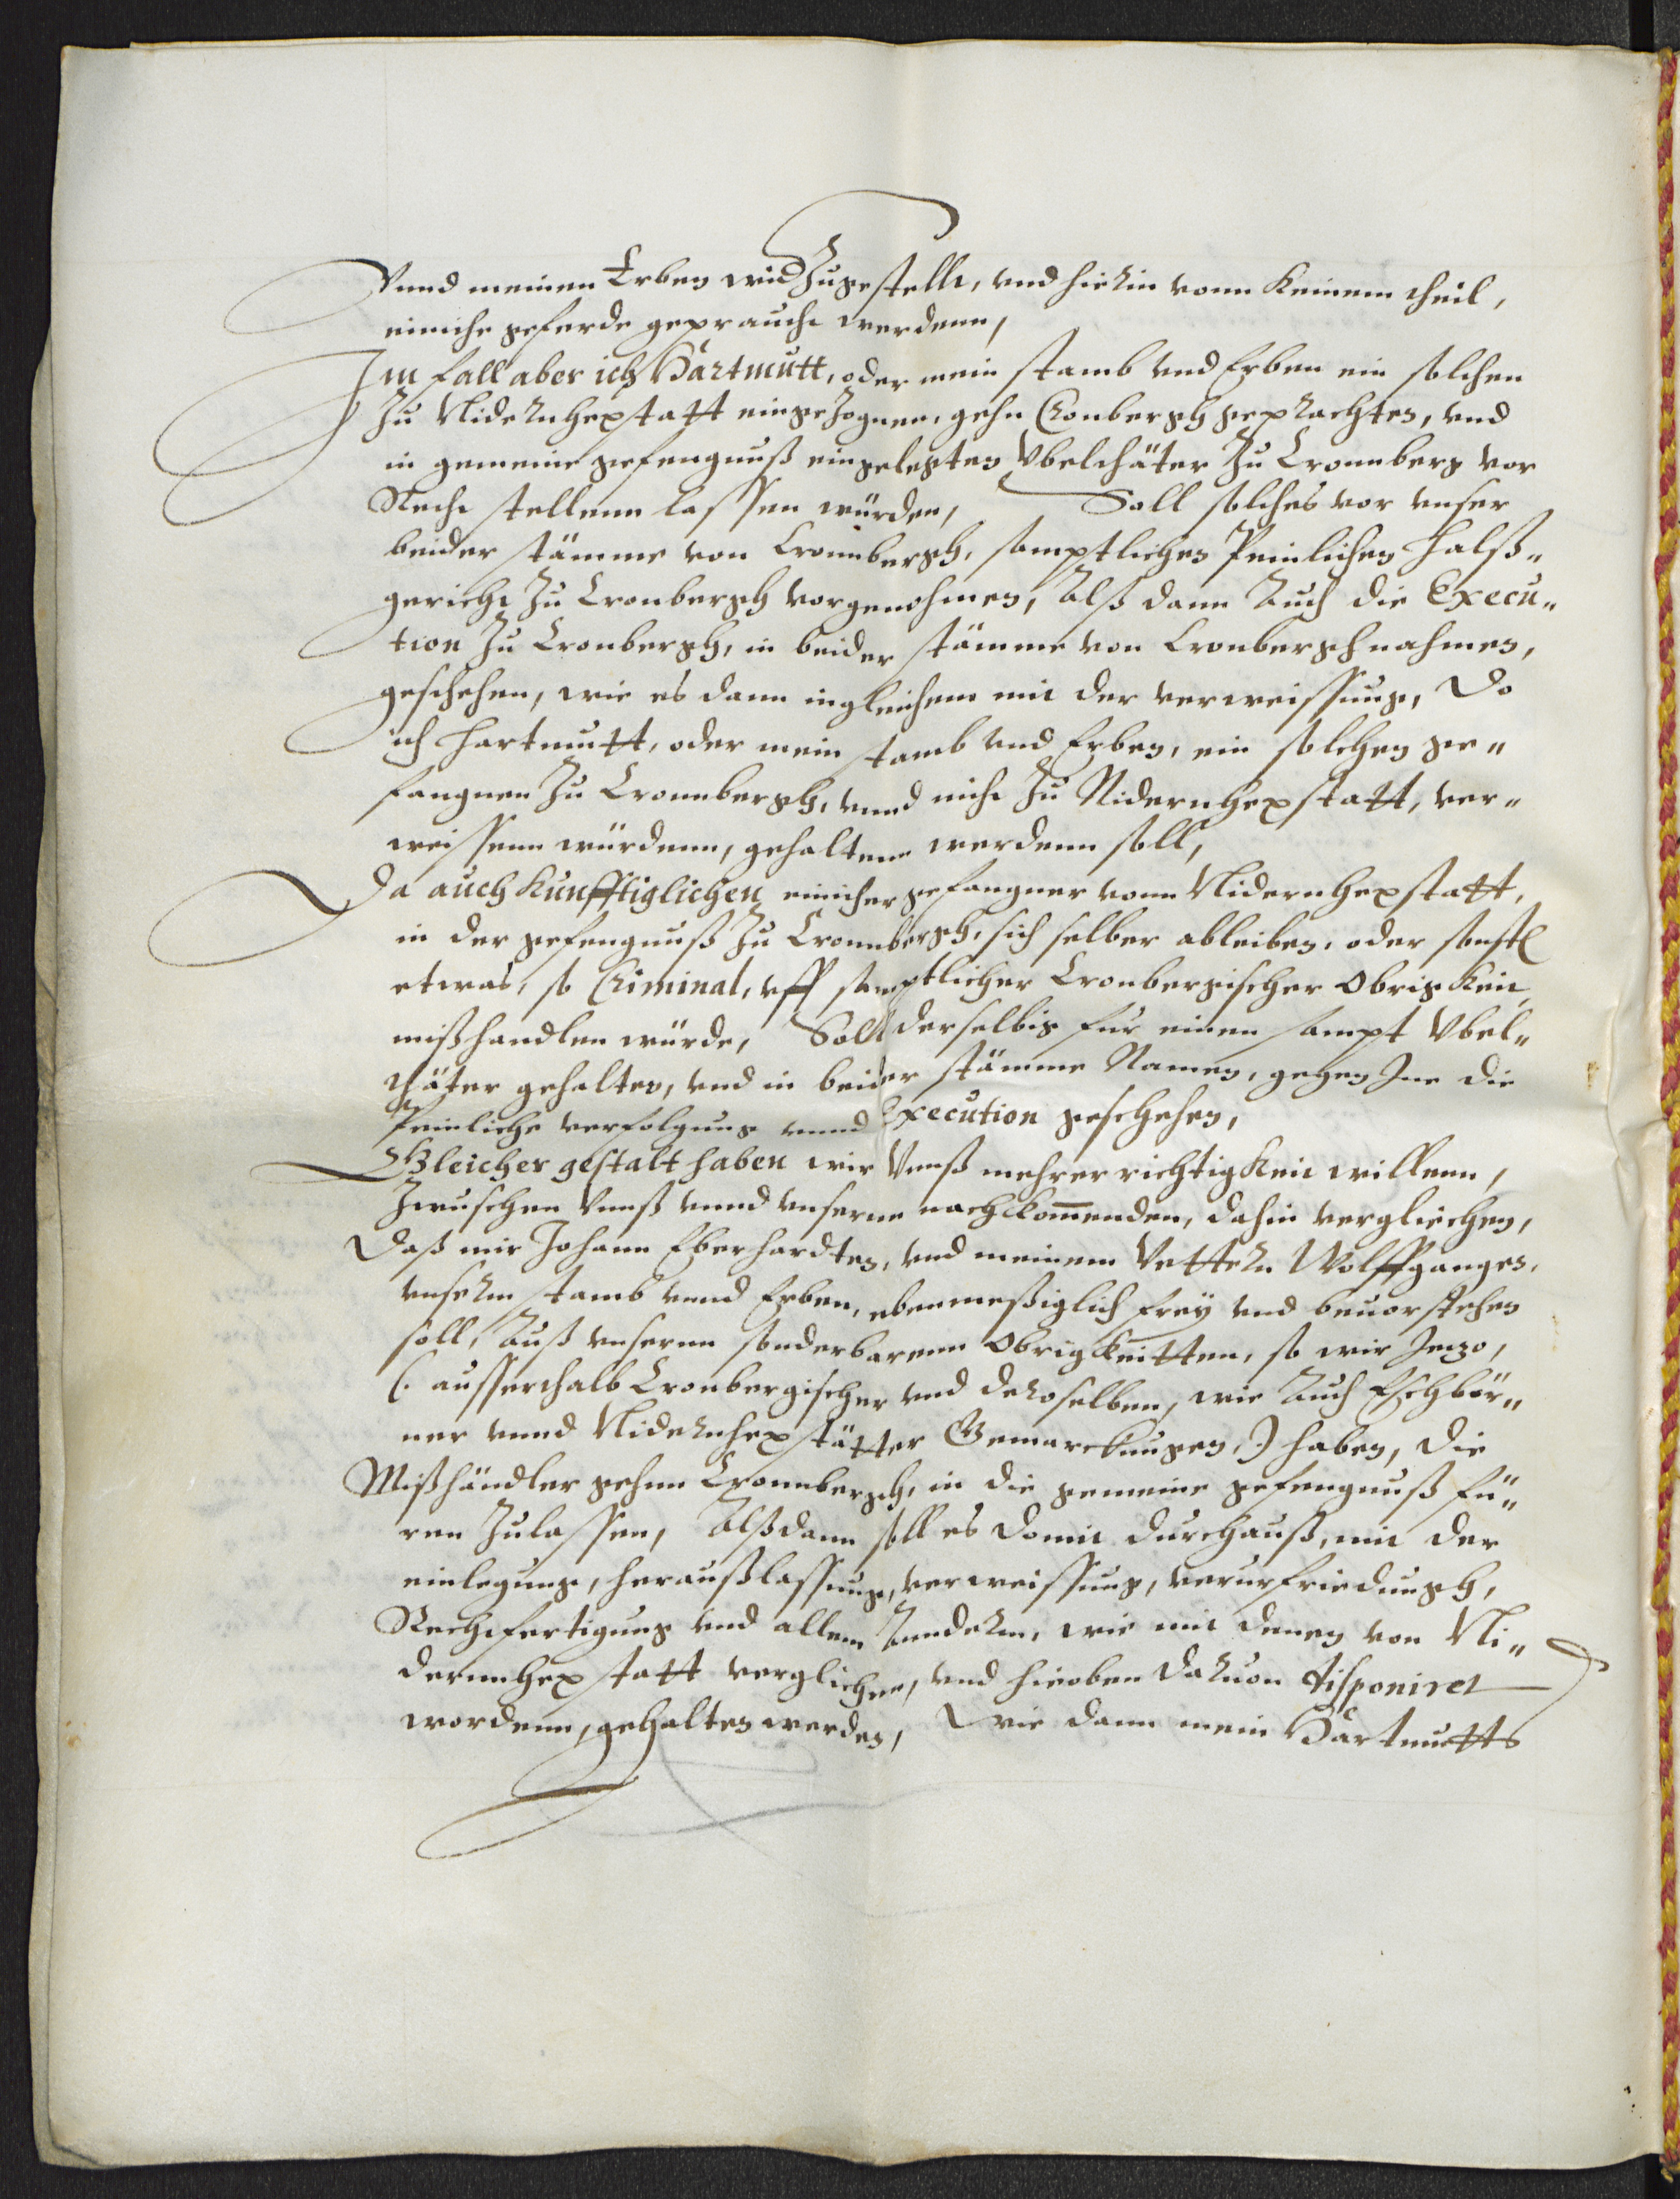 Vnnd meinen Erben wid Zugestellt, vnd hierin vonn keinem theil,
einiche geferde gepraucht werdenn,
Im fall aber ich Hartmutt, oder mein stamb vnd Erben ein solchen
Zu Nidernhexstatt eingezognen, gehn Cronbergh geprachten, vnd
in gemeine gefengnuß eingelegten Vbelthäter Zu Cronnberg vor
Recht stellenn lassen würden, Soll solches vor vnser
beider stämme von Cronnbergh, samptlichen Peinlichen Halß„
gericht Zu Cronbergh vorgenohmen, Alß dann Auch die Execu„
tion Zu Cronbergh, in beider stämme von Cronbergh nahmen,
geschehen, wie es dann ingleichem mit der verweissung, Do
ich Hartmutt, oder mein stamb vnd Erben, ein solchen ge„
fangnen Zu Cronnbergh, vnnd nicht Zu Nidernhexstatt, ver„
weissenn würdenn, gehaltenn werdenn soll,
Da auch kunfftiglichen einicher gefangner vonn Nidernhexstatt,
in der gefengnuß Zu Cronnbergh, sich selber ableiben, oder sonst
etwas, so Criminal, vff samptlicher Cronbergischer Obrigkeit
mißhandlen würde, Soll derselbig für einen sampt Vbel„
thäter gehalten, vnd in beider stämme Namen, gegen Ine die
Peinliche verfolgung vnnd Execution geschehen,
Gleicher gestalt haben wir Vnnß mehrer richtigkeit willenn,
Zwuschen Vnnß vnnd vnsernn nachkommenden, dahin verglichen,
Daß mir Johann Eberhardten, vnd meinem Vettern Wolffgangen,
vnserm stamb vnnd Erben, ebenmeßiglich frey vnd beuorstehen
soll, Auß vnsernn sonderbarenn Obrigkeitten, so wir Jetzo,
(. ausserthalb Cronbergischer vnd deroselben, wie Auch Eschbör„
ner vnnd Nidernhexstätter Gemarckungen,.) haben, die
Mißhändler gehnn Cronnbergh, in die gemeine gefengnuß fü„
ren Zulassen, Alßdann soll es domit durchauß, mit der
einlegung, heraußlassung, verweissung, verurfriedungh,
Rechtfertigung vnd allem Anndernn, wie mit denen von Ni„
dernnhexstatt verglichen, vnd hieoben dauon disponiret
wordenn, gehalten werden, Wie dann mein Hartmutts